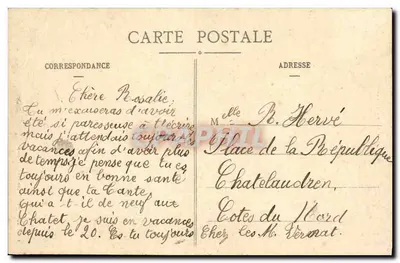 CARTE POSTALE
CORRESPONDANCE
ADRESSE
Chère Rosalie,
Tu m'excuseras d'avoir
été si paresseuse à t'écrire
mais j'attendais toujours les
vacances afin d'avoir plus
de temps je pense que tu es
toujours en bonne santé
ainsi que ta tante
qu'a t'il de neuf aux
Chatel, je suis en vacances
depuis le 20. Es tu toujours
Melle R. Hervé
Place de la République
Chatelaudren
Cotes du Nord
Chez les M.